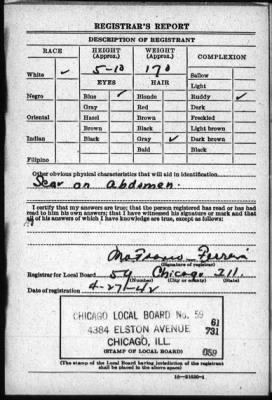 REGISTRAR'S REPORT
DESCRIPTION OF REGISTRANT
RACE HEIGHT (Approx.) WEIGHT (Approx.) COMPLEXION
5-10 170
White ✓ EYES HAIR Sallow
Light
Negro Blue ✓ Blonde Ruddy ✓
Gray Red Dark
Oriental Hazel Brown Freckled
Brown Black Light brown
Indian Black Gray ✓ Dark brown
Bald Black
Filipino
Other obvious physical characteristics that will aid in identification
Scar on Abdomen.
I certify that my answers are true; that the person registered has read or has had
read to him his own answers; that I have witnessed his signature or mark and that
all of his answers of which I have knowledge are true, except as follows:
(Signature of registrar)
Registrar for Local Board 59 Chicago Ill.
(Number) (City or county) (State)
Date of registration 4-27-42
CHICAGO LOCAL BOARD No. 59
61
4384 ELSTON AVENUE 731
CHICAGO, ILL. 059
(STAMP OF LOCAL BOARD)
(The stamp of the Local Board having jurisdiction of the registrant
shall be placed in the above space)